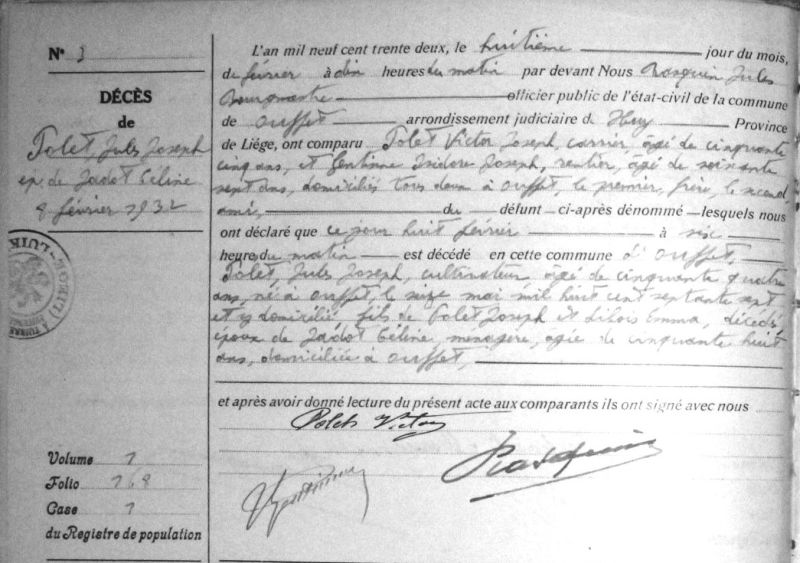 N° 3
DÉCÈS
de
Polet, Jules Joseph
ép. de Jadot Céline
8 février 1932
L'an mil neuf cent trente deux, le huitième jour du mois,
de février à dix heures du matin par devant Nous Rasquin Jules
Bourgmestre officier public de l'état-civil de la commune
de Ouffet arrondissement judiciaire d. Huy Province
de Liége, ont comparu Polet Victor Joseph, carrier, âgé de cinquante
cinq ans, et Gentinne Isidore Joseph, rentier, âgé de soixante
sept ans, domiciliés tous deux à Ouffet, le premier, frère, le second
ami, du défunt ci-après dénommé lesquels nous
ont déclaré que ce jour huit février à six
heures du matin est décédé en cette commune d'Ouffet,
Polet, Jules Joseph, cultivateur âgé de cinquante quatre
ans, né à Ouffet, le seize mai mil huit cent septante sept
et y domicilié fils de Polet Joseph et Lilois Emma, décédés
époux de Jadot Céline, ménagère, âgée de cinquante huit
ans, domiciliée à Ouffet,
et après avoir donné lecture du présent acte aux comparants ils ont signé avec nous
Polet Victor
Rasquin
Volume 1
Folio 168
Case 1
du Registre de population